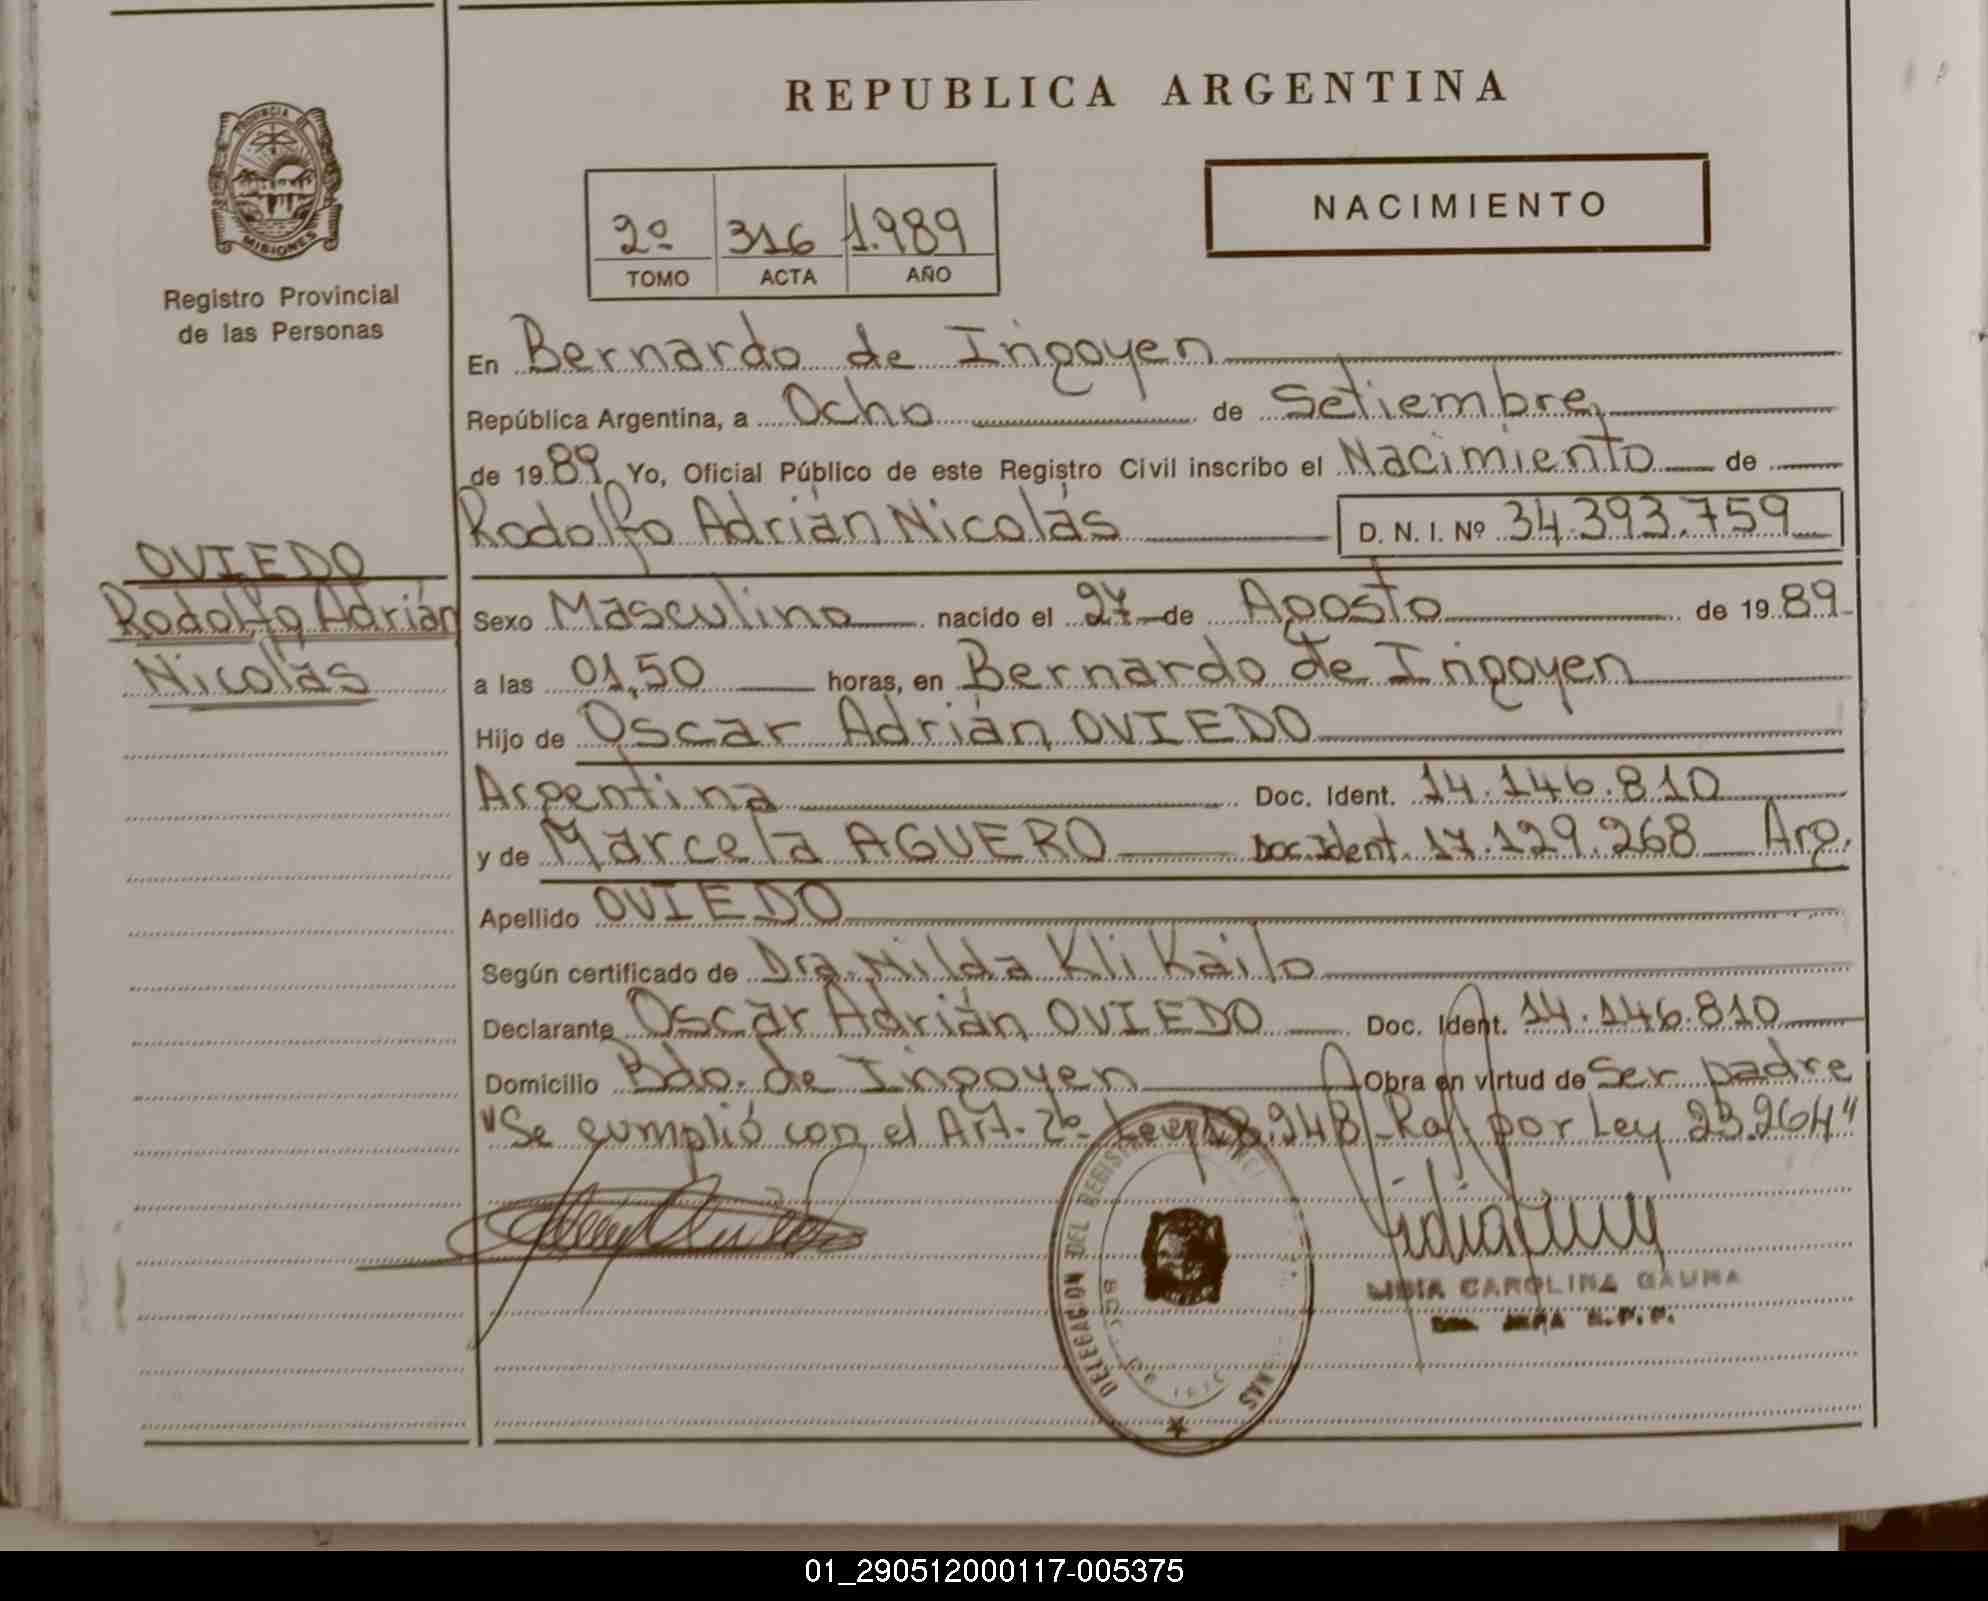 REPUBLICA ARGENTINA
PROVINCIA DE
MISIONES
Registro Provincial
de las Personas
NACIMIENTO
2º 316 1.989
TOMO ACTA AÑO
En Bernardo de Irigoyen
República Argentina, a Ocho de Setiembre,
de 1989, Yo, Oficial Público de este Registro Civil inscribo el Nacimiento de
Rodolfo Adrián Nicolás D. N. I. Nº 34.393.759
OVIEDO
Rodolfo Adrián
Nicolás
Sexo Masculino nacido el 27 de Agosto de 1989
a las 01,50 horas, en Bernardo de Irigoyen
Hijo de Oscar Adrián OVIEDO
Argentina Doc. Ident. 14.146.810
y de Marcela AGUERO Doc. Ident. 17.129.268 Arg.
Apellido OVIEDO
Según certificado de Dra. Nilda Kli Kailo
Declarante Oscar Adrián OVIEDO Doc. Ident. 14.146.810
Domicilio Bdo. de Irigoyen Obra en virtud de Ser padre
"Se cumplió con el Art. 2º Ley 18.248 - Raf. por Ley 23.264"
DELEGACION DEL REGISTRO
LIDIA CAROLINA GAUNA
01_290512000117-005375